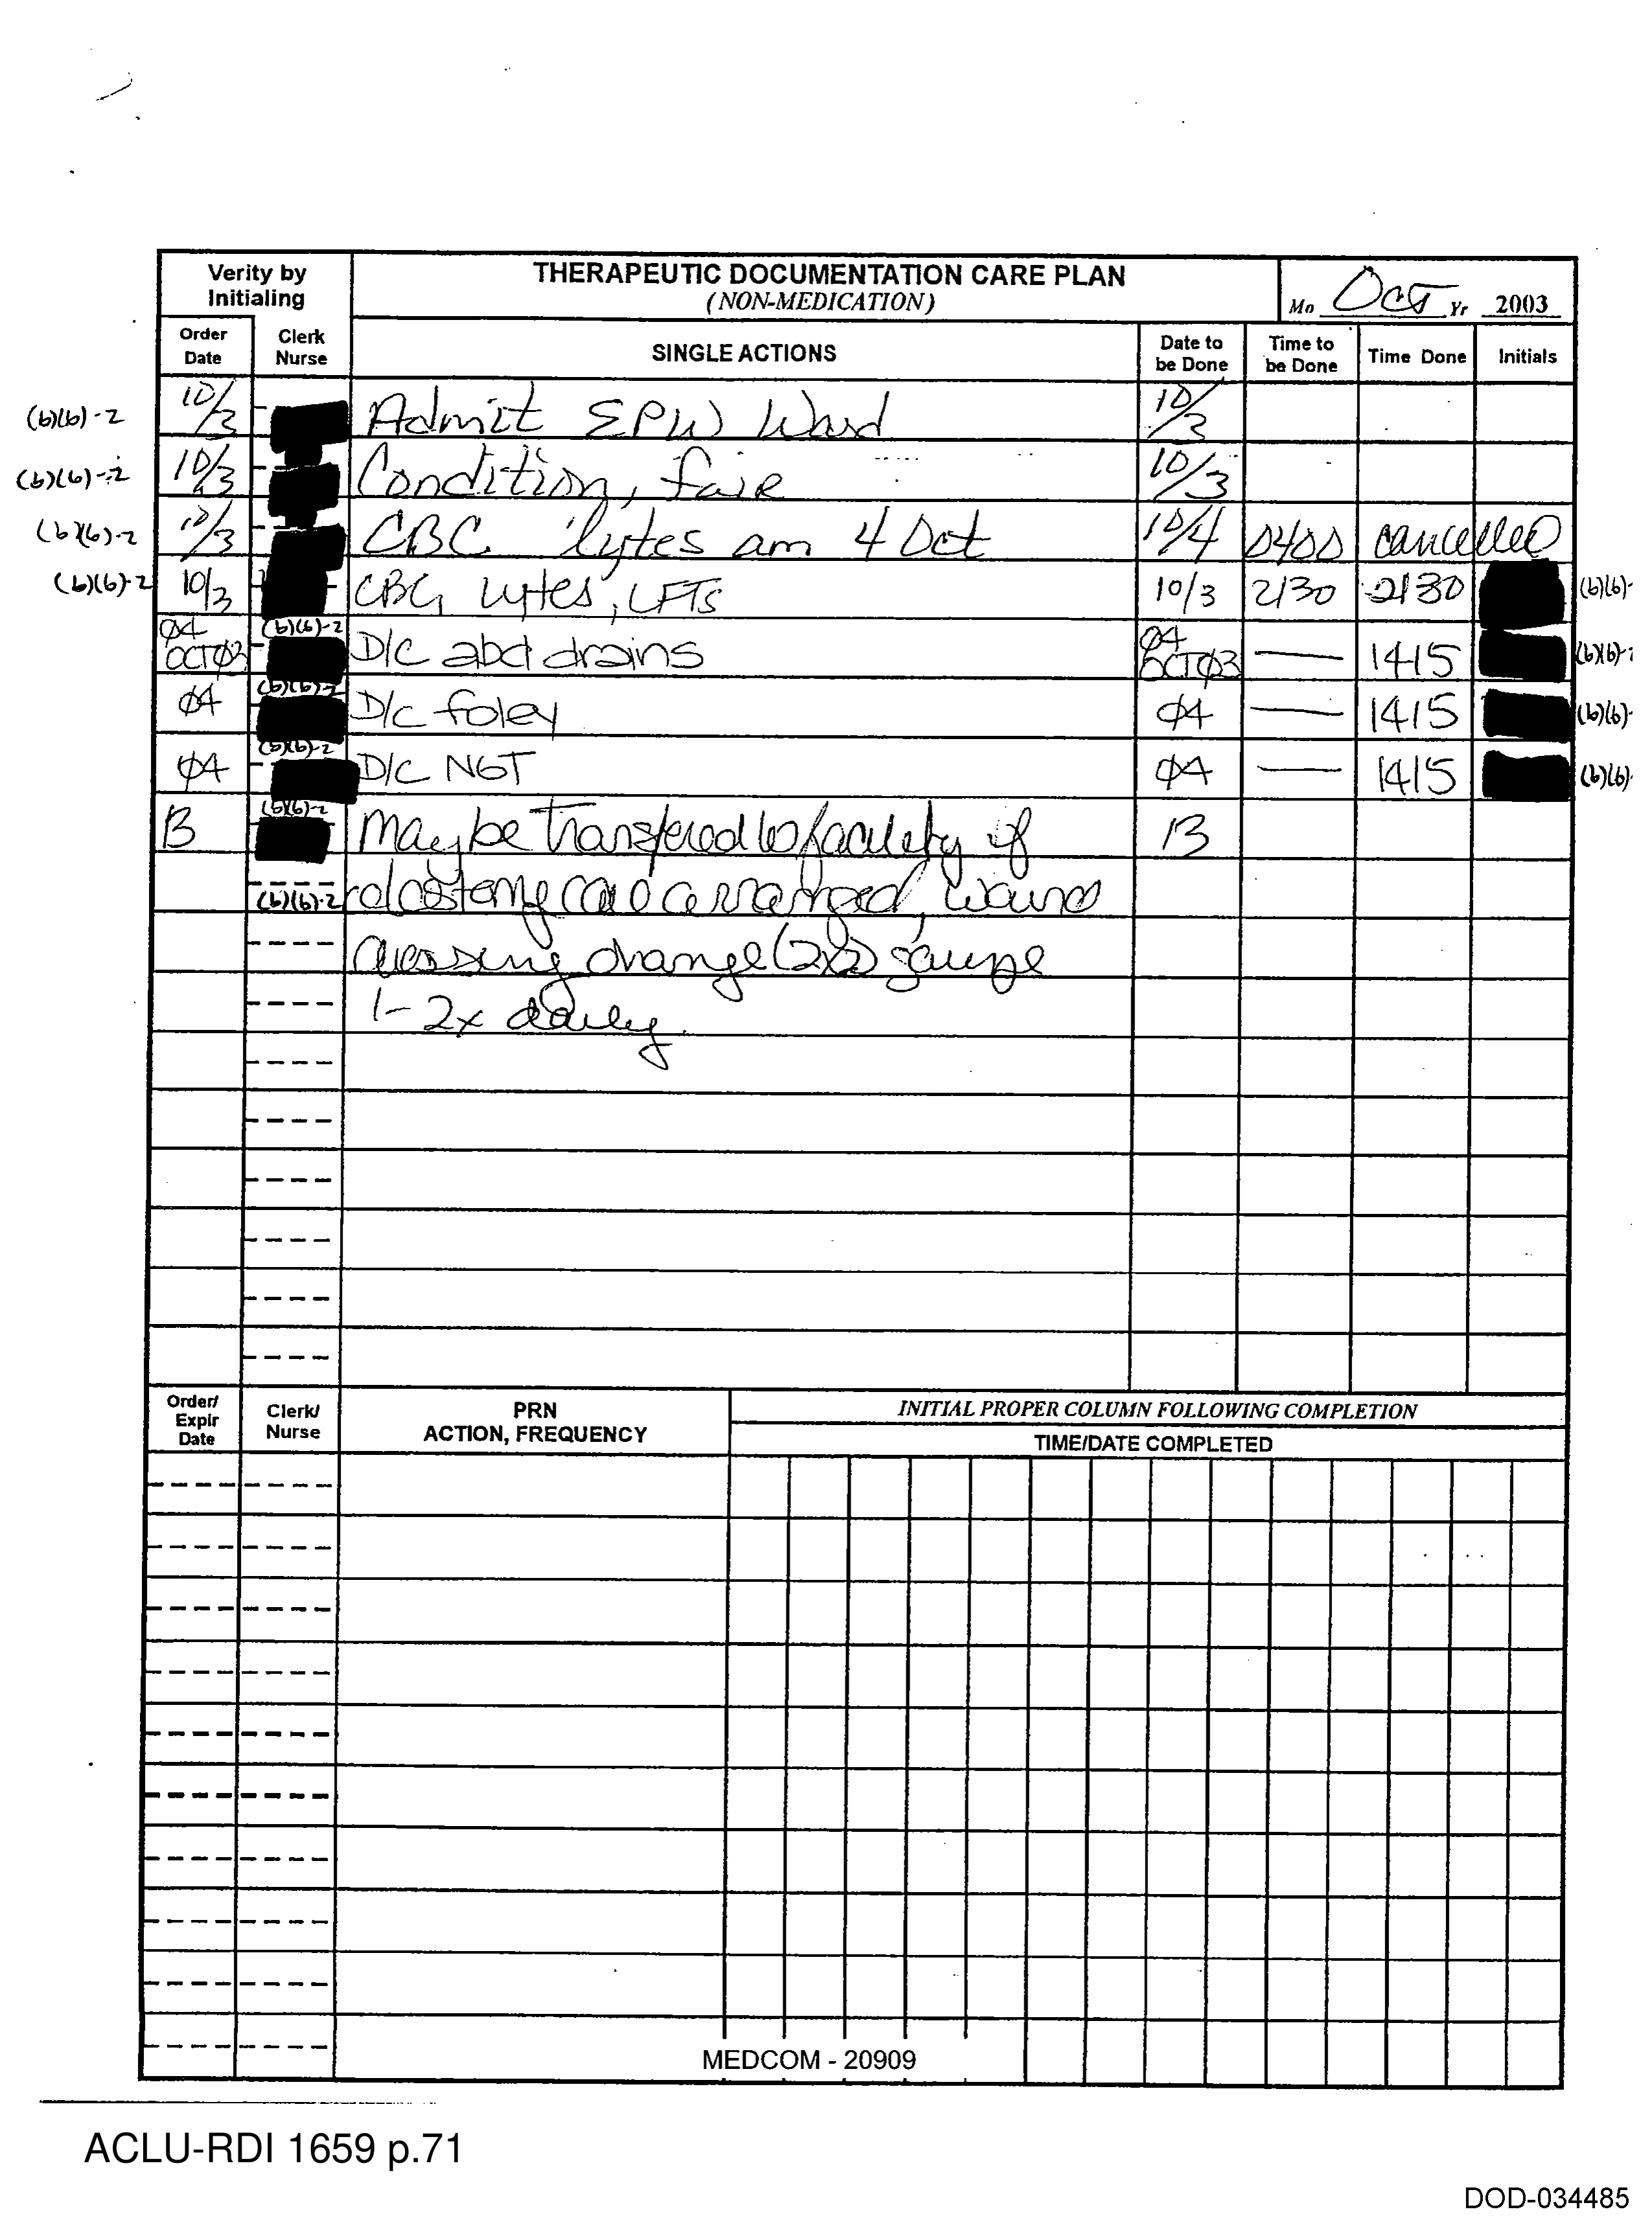 Verity by Initialing
THERAPEUTIC DOCUMENTATION CARE PLAN
(NON-MEDICATION)
Mo Oct Yr 2003
Order Date
Clerk Nurse
SINGLE ACTIONS
Date to be Done
Time to be Done
Time Done
Initials
(b)(6)-2 10/3 Admit EPW Ward 10/3
(b)(6)-2 10/3 Condition, fair 10/3
(b)(6)-2 10/3 CBC lytes am 4 Oct 10/4 0400 cancelled
(b)(6)-2 10/3 CBC, lytes, LFTs 10/3 2130 2130 (b)(6)-
Ø4 OCTØ3 (b)(6)-2 D/C abd drains Ø4 OCTØ3 — 1415 (b)(6)-2
Ø4 (b)(6)-2 D/c foley Ø4 — 1415 (b)(6)-
Ø4 (b)(6)-2 D/C NGT Ø4 — 1415 (b)(6)-
13 (b)(6)-2 May be transfered to faculety if 13
(b)(6)-2 colostomy care arranged, wound
dressing change (2x2) gauze
1-2x daily.
Order/ Expir Date
Clerk/ Nurse
PRN
ACTION, FREQUENCY
INITIAL PROPER COLUMN FOLLOWING COMPLETION
TIME/DATE COMPLETED
MEDCOM - 20909
ACLU-RDI 1659 p.71
DOD-034485